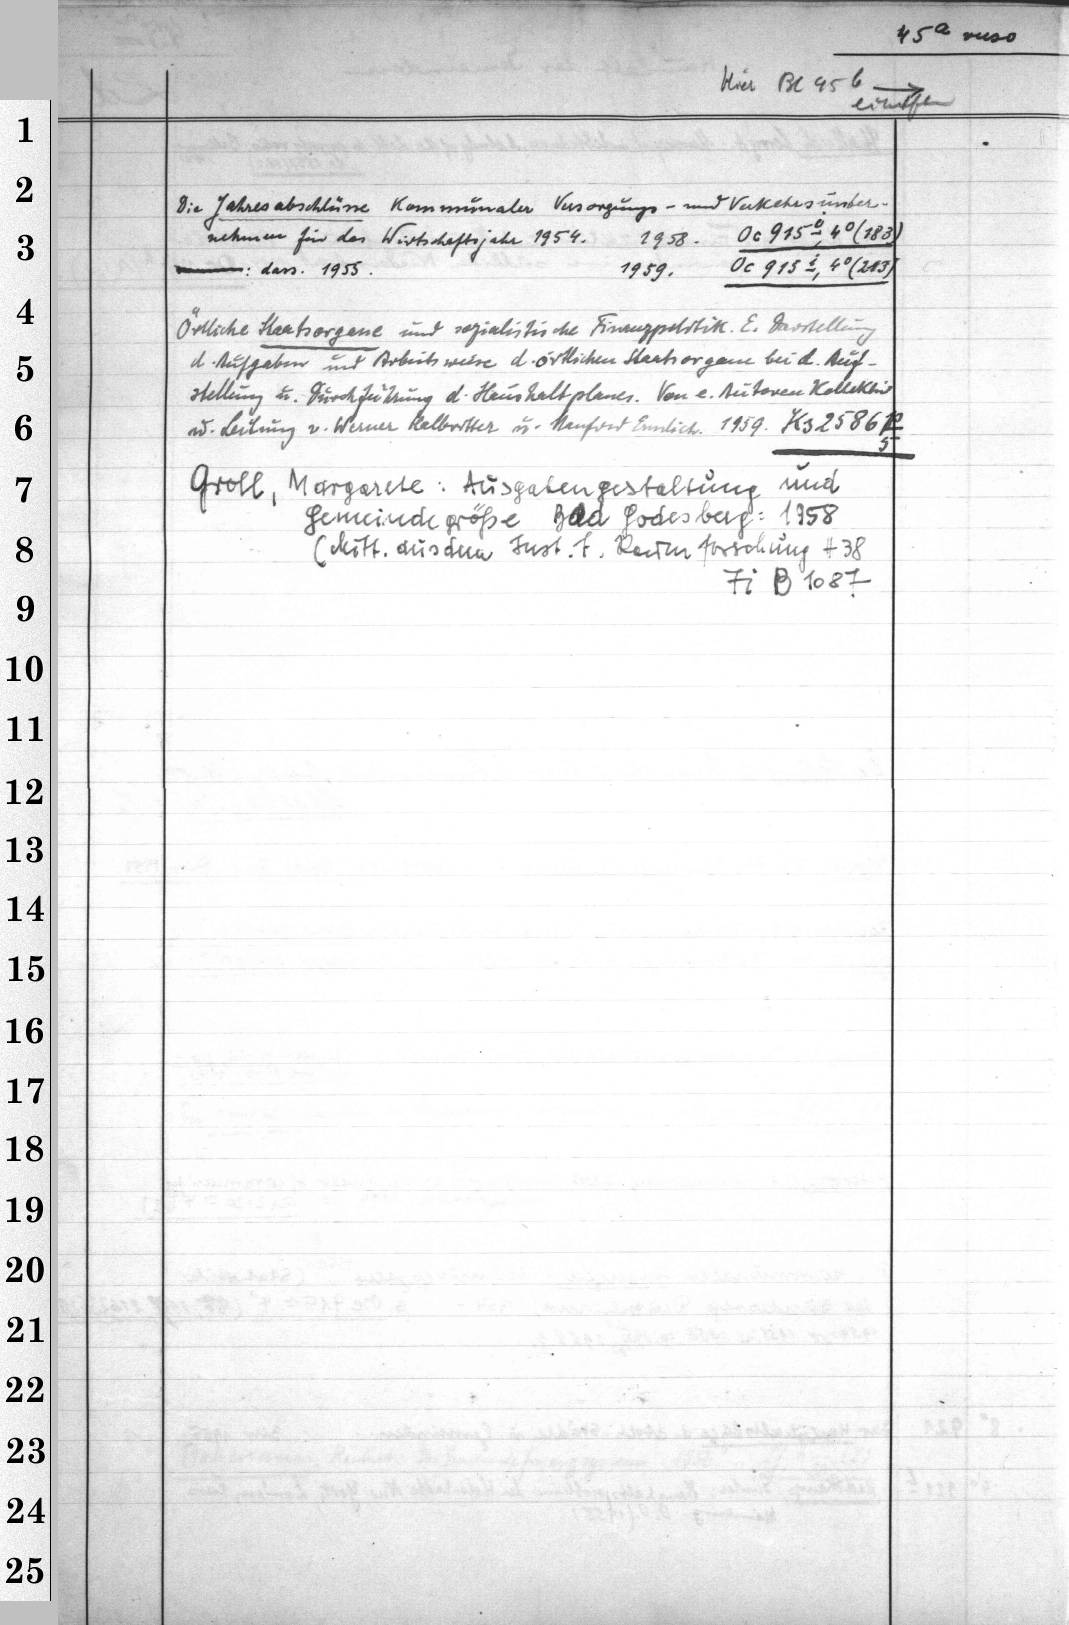 45a
Hier Bl 45b →
1
2
3
4
5
6
7
8
9
10
11
12
13
14
15
16
17
18
19
20
21
22
23
24
25
Die Jahresabschlüsse Kommunaler Versorgungs- und Verkehrsunter-
nehmen für das Wirtschaftsjahr 1954. 1958. Oc 915 4° (183)
: dass. 1955. 1959. Oc 915 i, 4° (213)
Örtliche Staatsorgane und sozialistische Finanzpolitik. E. Darstellung
d. Aufgaben und Arbeitsweise d. örtlichen Staatsorgane bei d. Auf-
stellung u. Durchführung d. Haushaltplanes. Von e. Autoren Kollektiv
u. Leitung v. Werner Kalbritter u. Manfred Emmlich. 1959. Ks 2586
Groll, Margarete: Ausgabengestaltung und
Gemeindegröße Bad Godesberg: 1958
(Mitt. aus dem Inst. f. Raumforschung H 38
Fi B 1087